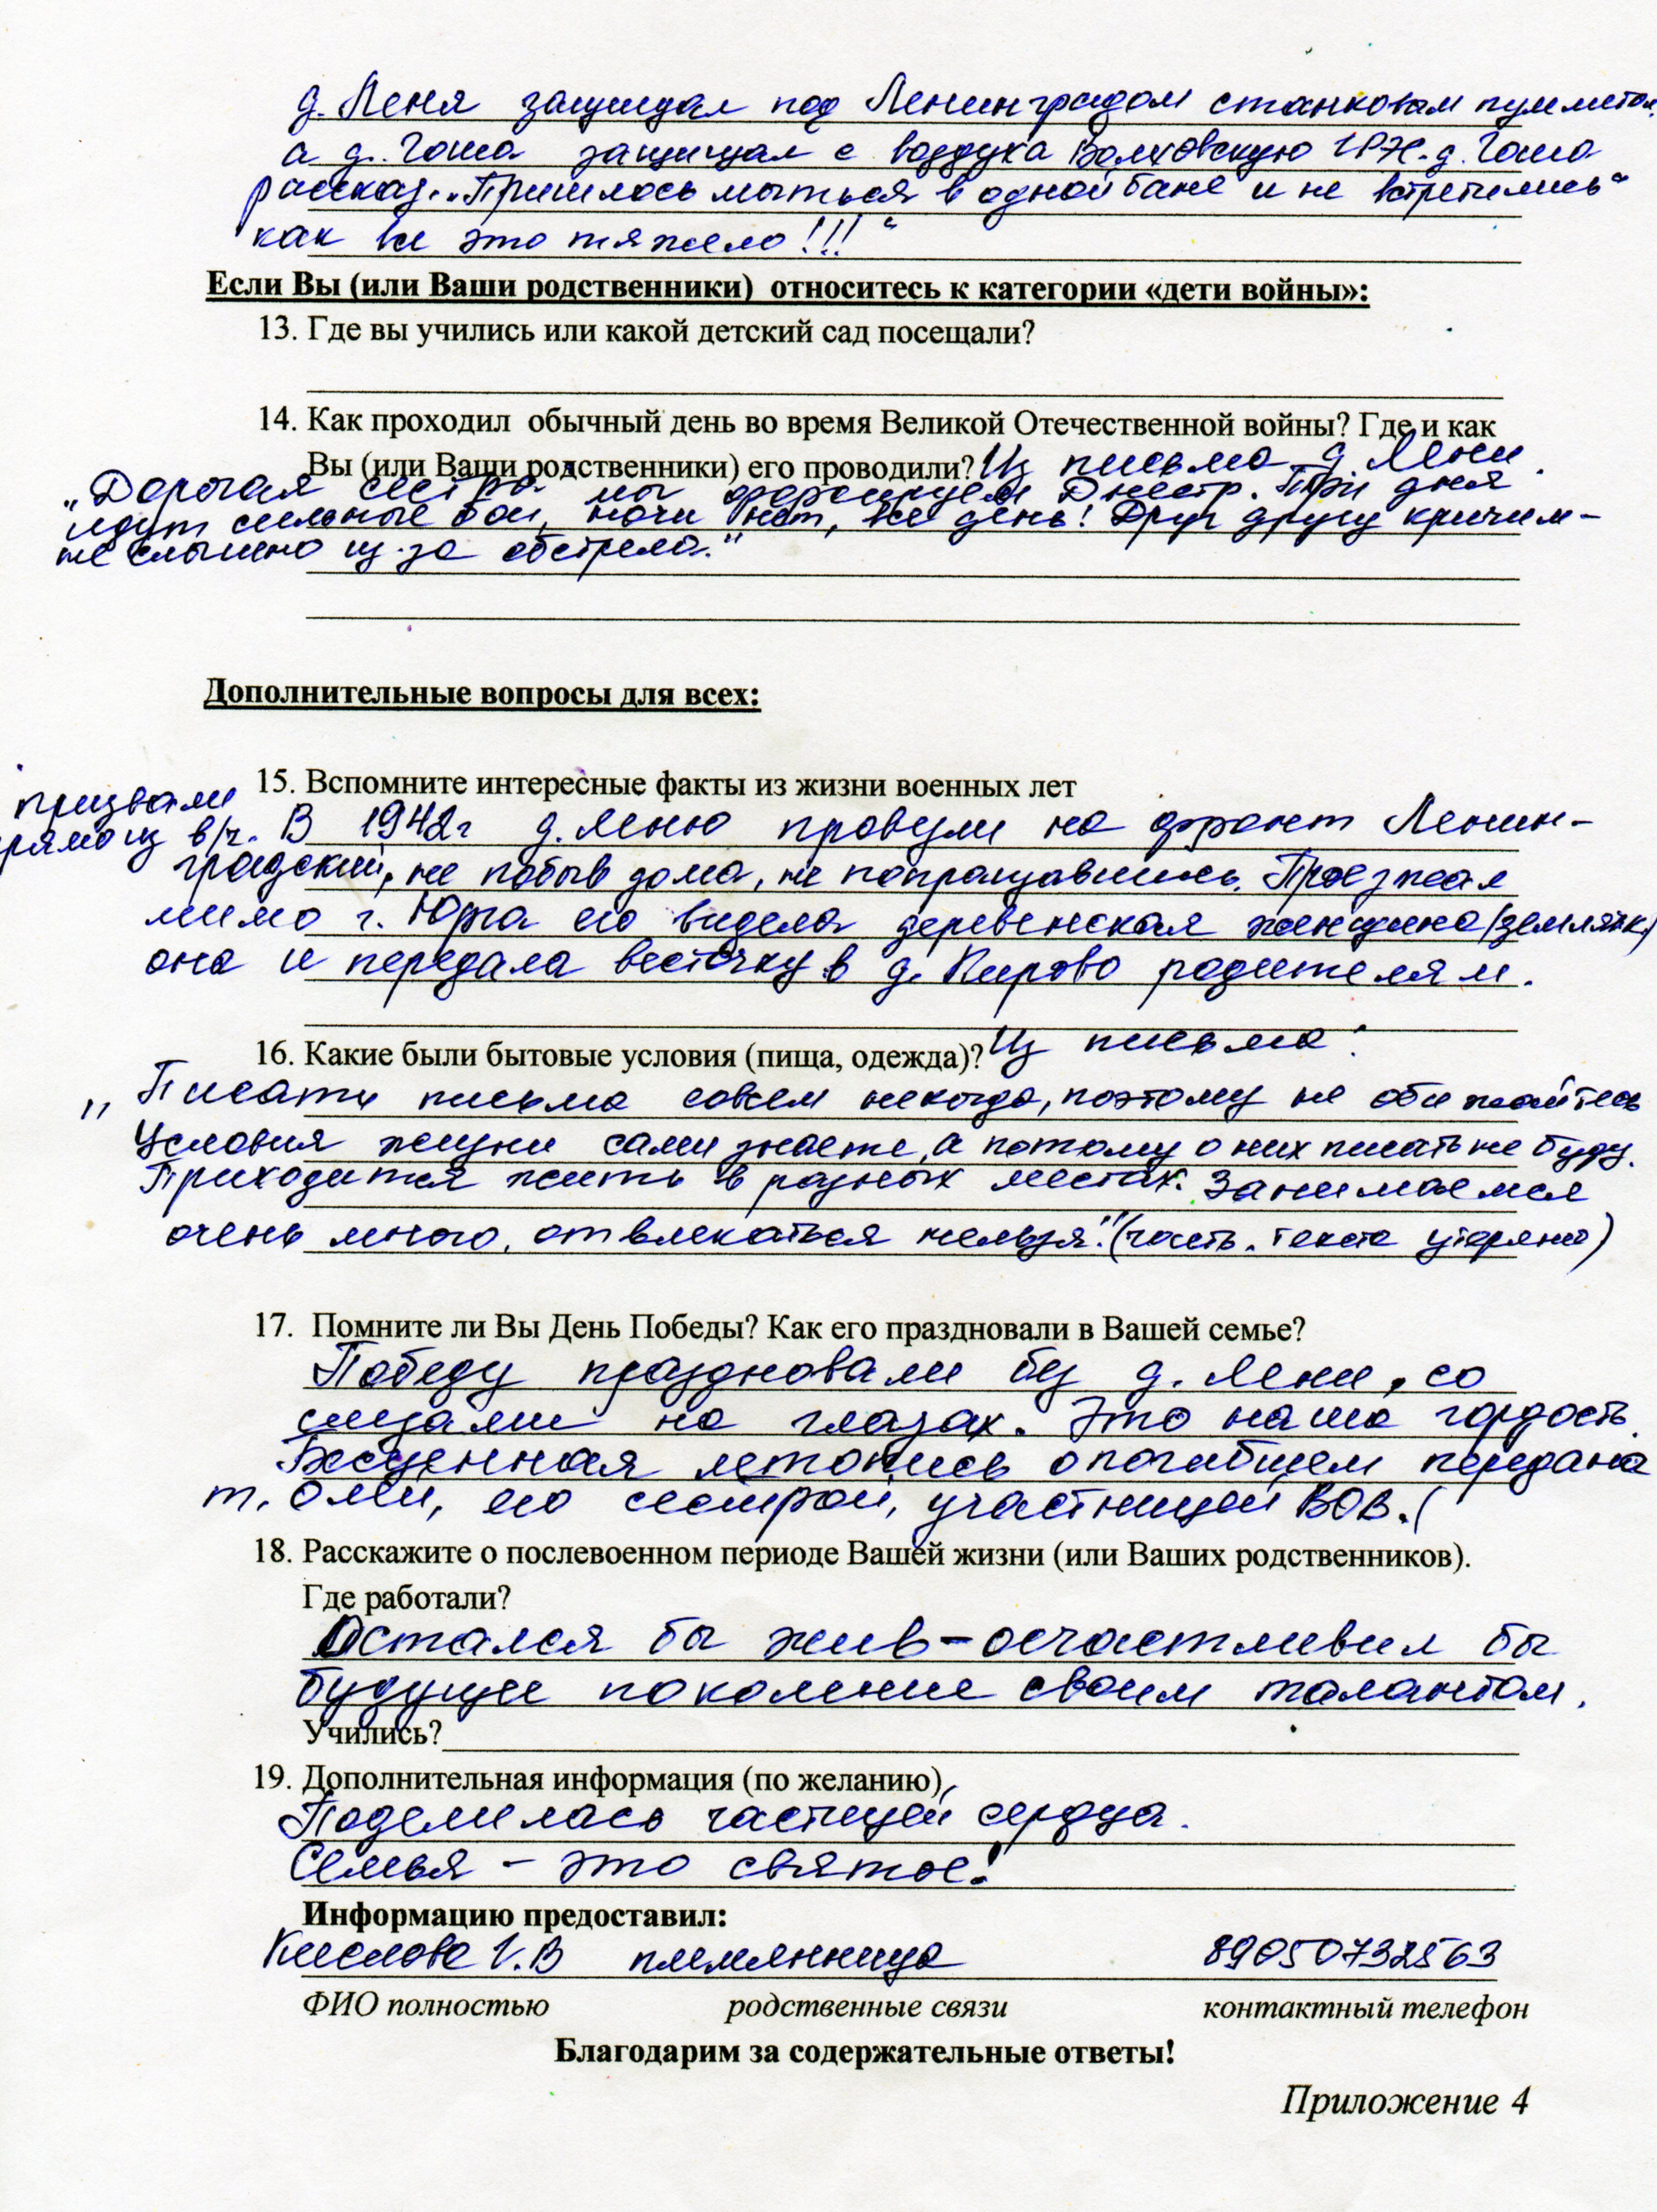 д. Леня защищал под Ленинградом станковым пулеметом,
а д. Гоша защищал с воздуха Волховскую ГРЭС. д. Гоша
рассказ. „Пришлось мыться в одной бане и не встретились"
как все это тяжело!!! "
Если Вы (или Ваши родственники) относитесь к категории «дети войны»:
13. Где вы учились или какой детский сад посещали?
14. Как проходил обычный день во время Великой Отечественной войны? Где и как
Вы (или Ваши родственники) его проводили? Из письма д. Лени.
„Дорогая сестра мы форсируем Днестр. Три дня
идут сильные бои, ночи нет, все день! Друг другу кричим-
не слышно из-за обстрела."
Дополнительные вопросы для всех:
15. Вспомните интересные факты из жизни военных лет
призвали
прямо из в/ч. В 1942г д. Леню провезли на фронт Ленин-
градский, не побыв дома, не попрощавшись. Проезжал
мимо г. Юрга его видела деревенская женщина (землячк.)
она и передала весточку в д. Кирово родителям.
16. Какие были бытовые условия (пища, одежда)? Из письма:
„Писать письма совсем некогда, поэтому не обижайтесь
Условия жизни сами знаете, а потому о них писать не буду.
Приходится жить в разных местах. Занимаемся
очень много, отвлекаться нельзя." (часть. текста утеряно)
17. Помните ли Вы День Победы? Как его праздновали в Вашей семье?
Победу праздновали без д. Лени, со
слезами на глазах. Это наша гордость.
Бесценная летопись о погибшем передана
т. Олей, его сестрой, участницей ВОВ. (
18. Расскажите о послевоенном периоде Вашей жизни (или Ваших родственников).
Где работали?
Остался бы жив - осчастливил бы
будущее поколение своим талантом.
Учились?
19. Дополнительная информация (по желанию)
Поделилась частицей сердца.
Семья - это святое!
Информацию предоставил:
Кислова Г.В племянница 89050732563
ФИО полностью родственные связи контактный телефон
Благодарим за содержательные ответы!
Приложение 4